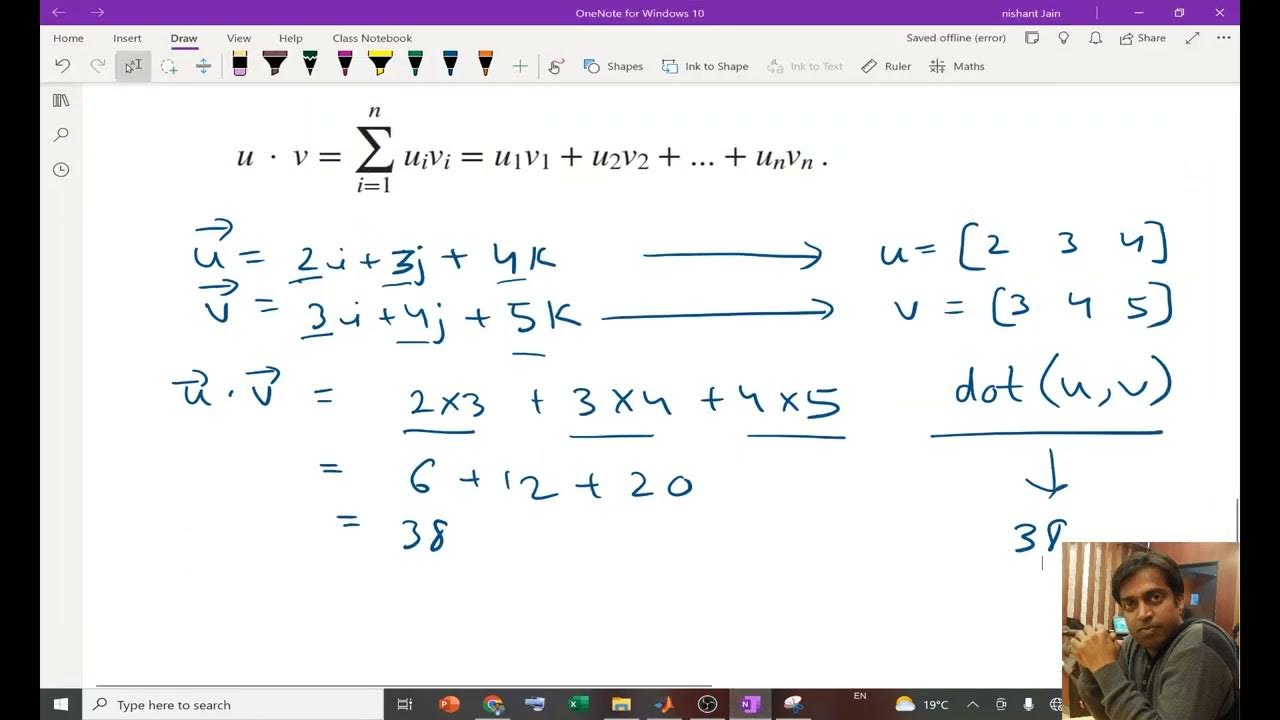 OneNote for Windows 10
nishant Jain
Home Insert Draw View Help Class Notebook
Saved offline (error) Share
Shapes Ink to Shape Ink to Text Ruler Maths
u · v = ∑_{i=1}^{n} uᵢvᵢ = u₁v₁ + u₂v₂ + ... + uₙvₙ .
u⃗ = 2i + 3j + 4k ⟶ u = [2 3 4]
v⃗ = 3i + 4j + 5k ⟶ v = [3 4 5]
u⃗ · v⃗ = 2×3 + 3×4 + 4×5 dot(u,v)
= 6 + 12 + 20 ↓
= 38 38
Type here to search
EN
19°C